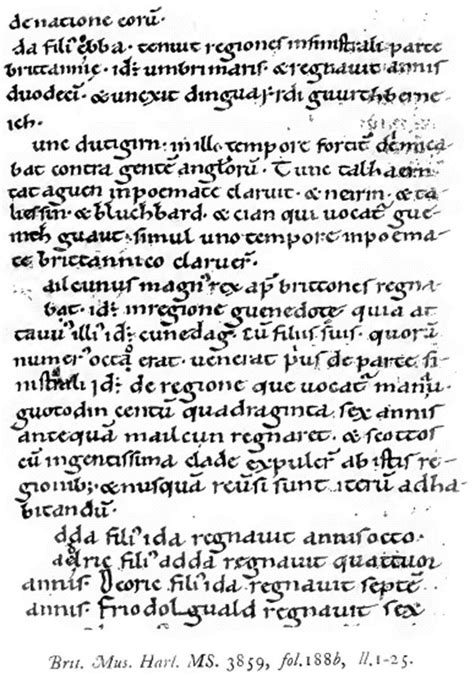 de natione eorū.
da fili᾽ ebba. tenuit regiones insinistrali parte
brittannie. id: umbri maris. & regnavit annis
duodecī. & unexit dinguayrdi guurthberne
ich.
unc dutigirn. inillo tempore fortit̄ dimica
bat contra gentē anglorū. Tunc talhaern
tataguen inpoemate claruit. & neirin. & ta
liessin. & bluchbard. & cian qui vocat̄ gue
nith guaut. simul uno tempore inpoema
te brittannico claruer̄.
ailcunus magn᾽ rex ap̄ brittones regna
bat. id: inregione guenedote quia at
tavu᾽ illi᾽ id: cunedag. cū filiis suis. quorū
numer᾽ octo erat. venerat pˈus de parte si
nistrali id: de regione que vocat̄ manau
guotodin centū quadraginta sex annis
antequā mailcun regnaret. & scottos
cū ingentissima clade expuler̄ ab istis re
gionib; & nusquā reversi sunt iterū adha
bitandū.
dda fili᾽ ida regnavit annis octo.
aedric fili᾽ adda regnavit quattuor
annis. Deoric fili᾽ ida regnavit septē
annis. Friodolguald regnavit sex
Brit. Mus. Harl. MS. 3859, fol.188b, ll.1-25.